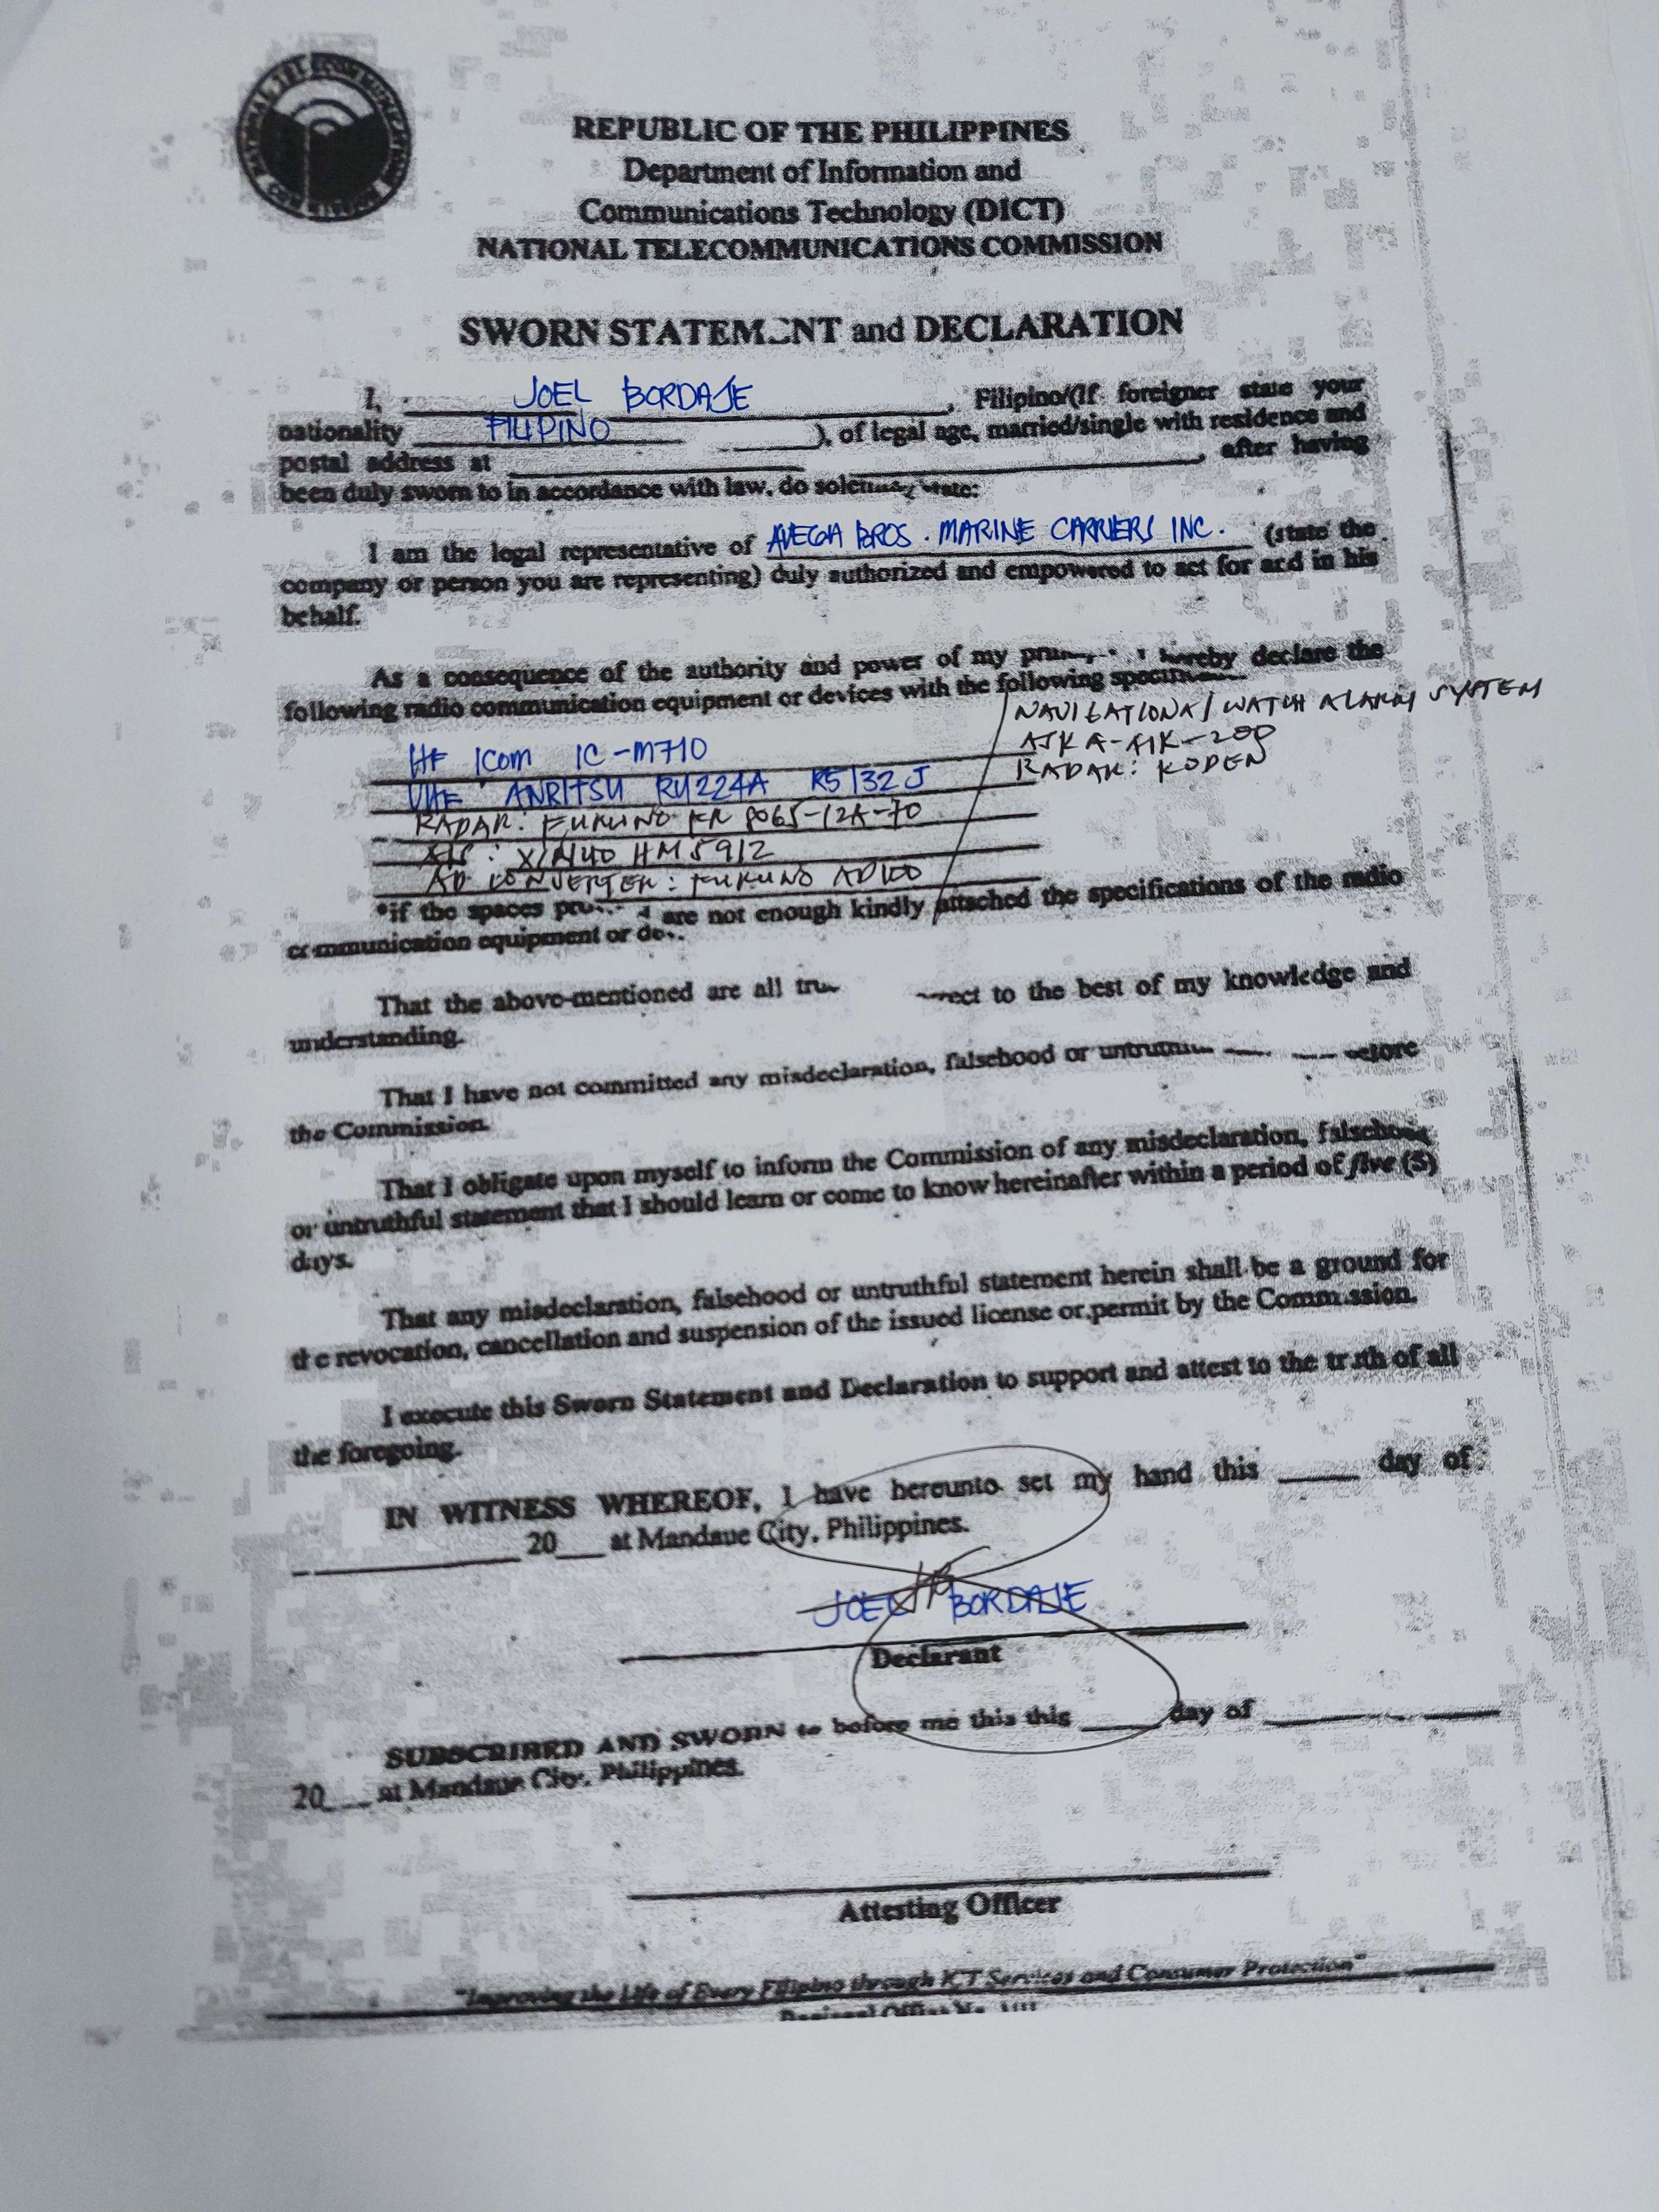 REPUBLIC OF THE PHILIPPINES
Department of Information and
Communications Technology (DICT)
NATIONAL TELECOMMUNICATIONS COMMISSION
SWORN STATEMENT and DECLARATION
I, JOEL BORDAJE, Filipino/(If foreigner state your
nationality FILIPINO ), of legal age, married/single with residence and
postal address at , after having
been duly sworn to in accordance with law, do state:
I am the legal representative of AVEGA BROS. MARINE CARRIERS INC. (state the
company or person you are representing) duly authorized and empowered to act for and in his
behalf.
As a consequence of the authority and power of my hereby declare the
following radio communication equipment or devices with the following
NAVIGATIONAL / WATCH ALARM SYSTEM
RADAR: KODEN
HF ICOM IC-M710
VHF ANRITSU RU224A R5132J
RADAR: FURUNO FR 8065-12A-70
HM5912
AD CONVERTER: FURUNO AD100
*if the spaces are not enough kindly attached the specifications of the radio
communication equipment or
That the above-mentioned are all to the best of my knowledge and
understanding.
That I have not committed any misdeclaration, falsehood or before
the Commission.
That I obligate upon myself to inform the Commission of any misdeclaration, falsehood
or untruthful statement that I should learn or come to know hereinafter within a period of five (5)
days.
That any misdeclaration, falsehood or untruthful statement herein shall be a ground for
the revocation, cancellation and suspension of the issued license or permit by the Commission.
I execute this Sworn Statement and Declaration to support and attest to the truth of all
the foregoing.
IN WITNESS WHEREOF, I have hereunto set my hand this _____ day of
______________ 20___ at Mandaue City, Philippines.
JOEL BORDAJE
Declarant
SUBSCRIBED AND SWORN to before me this this _____ day of ______________
20___ at Mandaue City, Philippines.
Attesting Officer
"Improving the Life of Every Filipino through ICT Services and Consumer Protection"
Regional Office No.